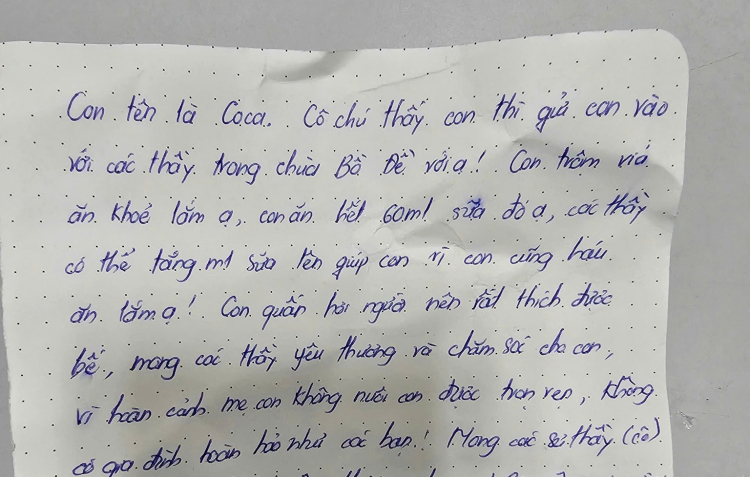 Con tên là Coca. Cô chú thấy con thì gửi con vào
với các thầy trong chùa Bồ Đề với ạ! Con trộm vía
ăn khoẻ lắm ạ, con ăn hết 60ml sữa đó ạ, các thầy
có thể tăng ml sữa lên giúp con vì con cũng háu
ăn lắm ạ! Con quấn hơi người nên rất thích được
bế, mong các thầy yêu thương và chăm sóc cho con,
vì hoàn cảnh mẹ con không nuôi con được trọn vẹn, không
có gia đình hoàn hảo như các bạn! Mong các sư thầy (cô)